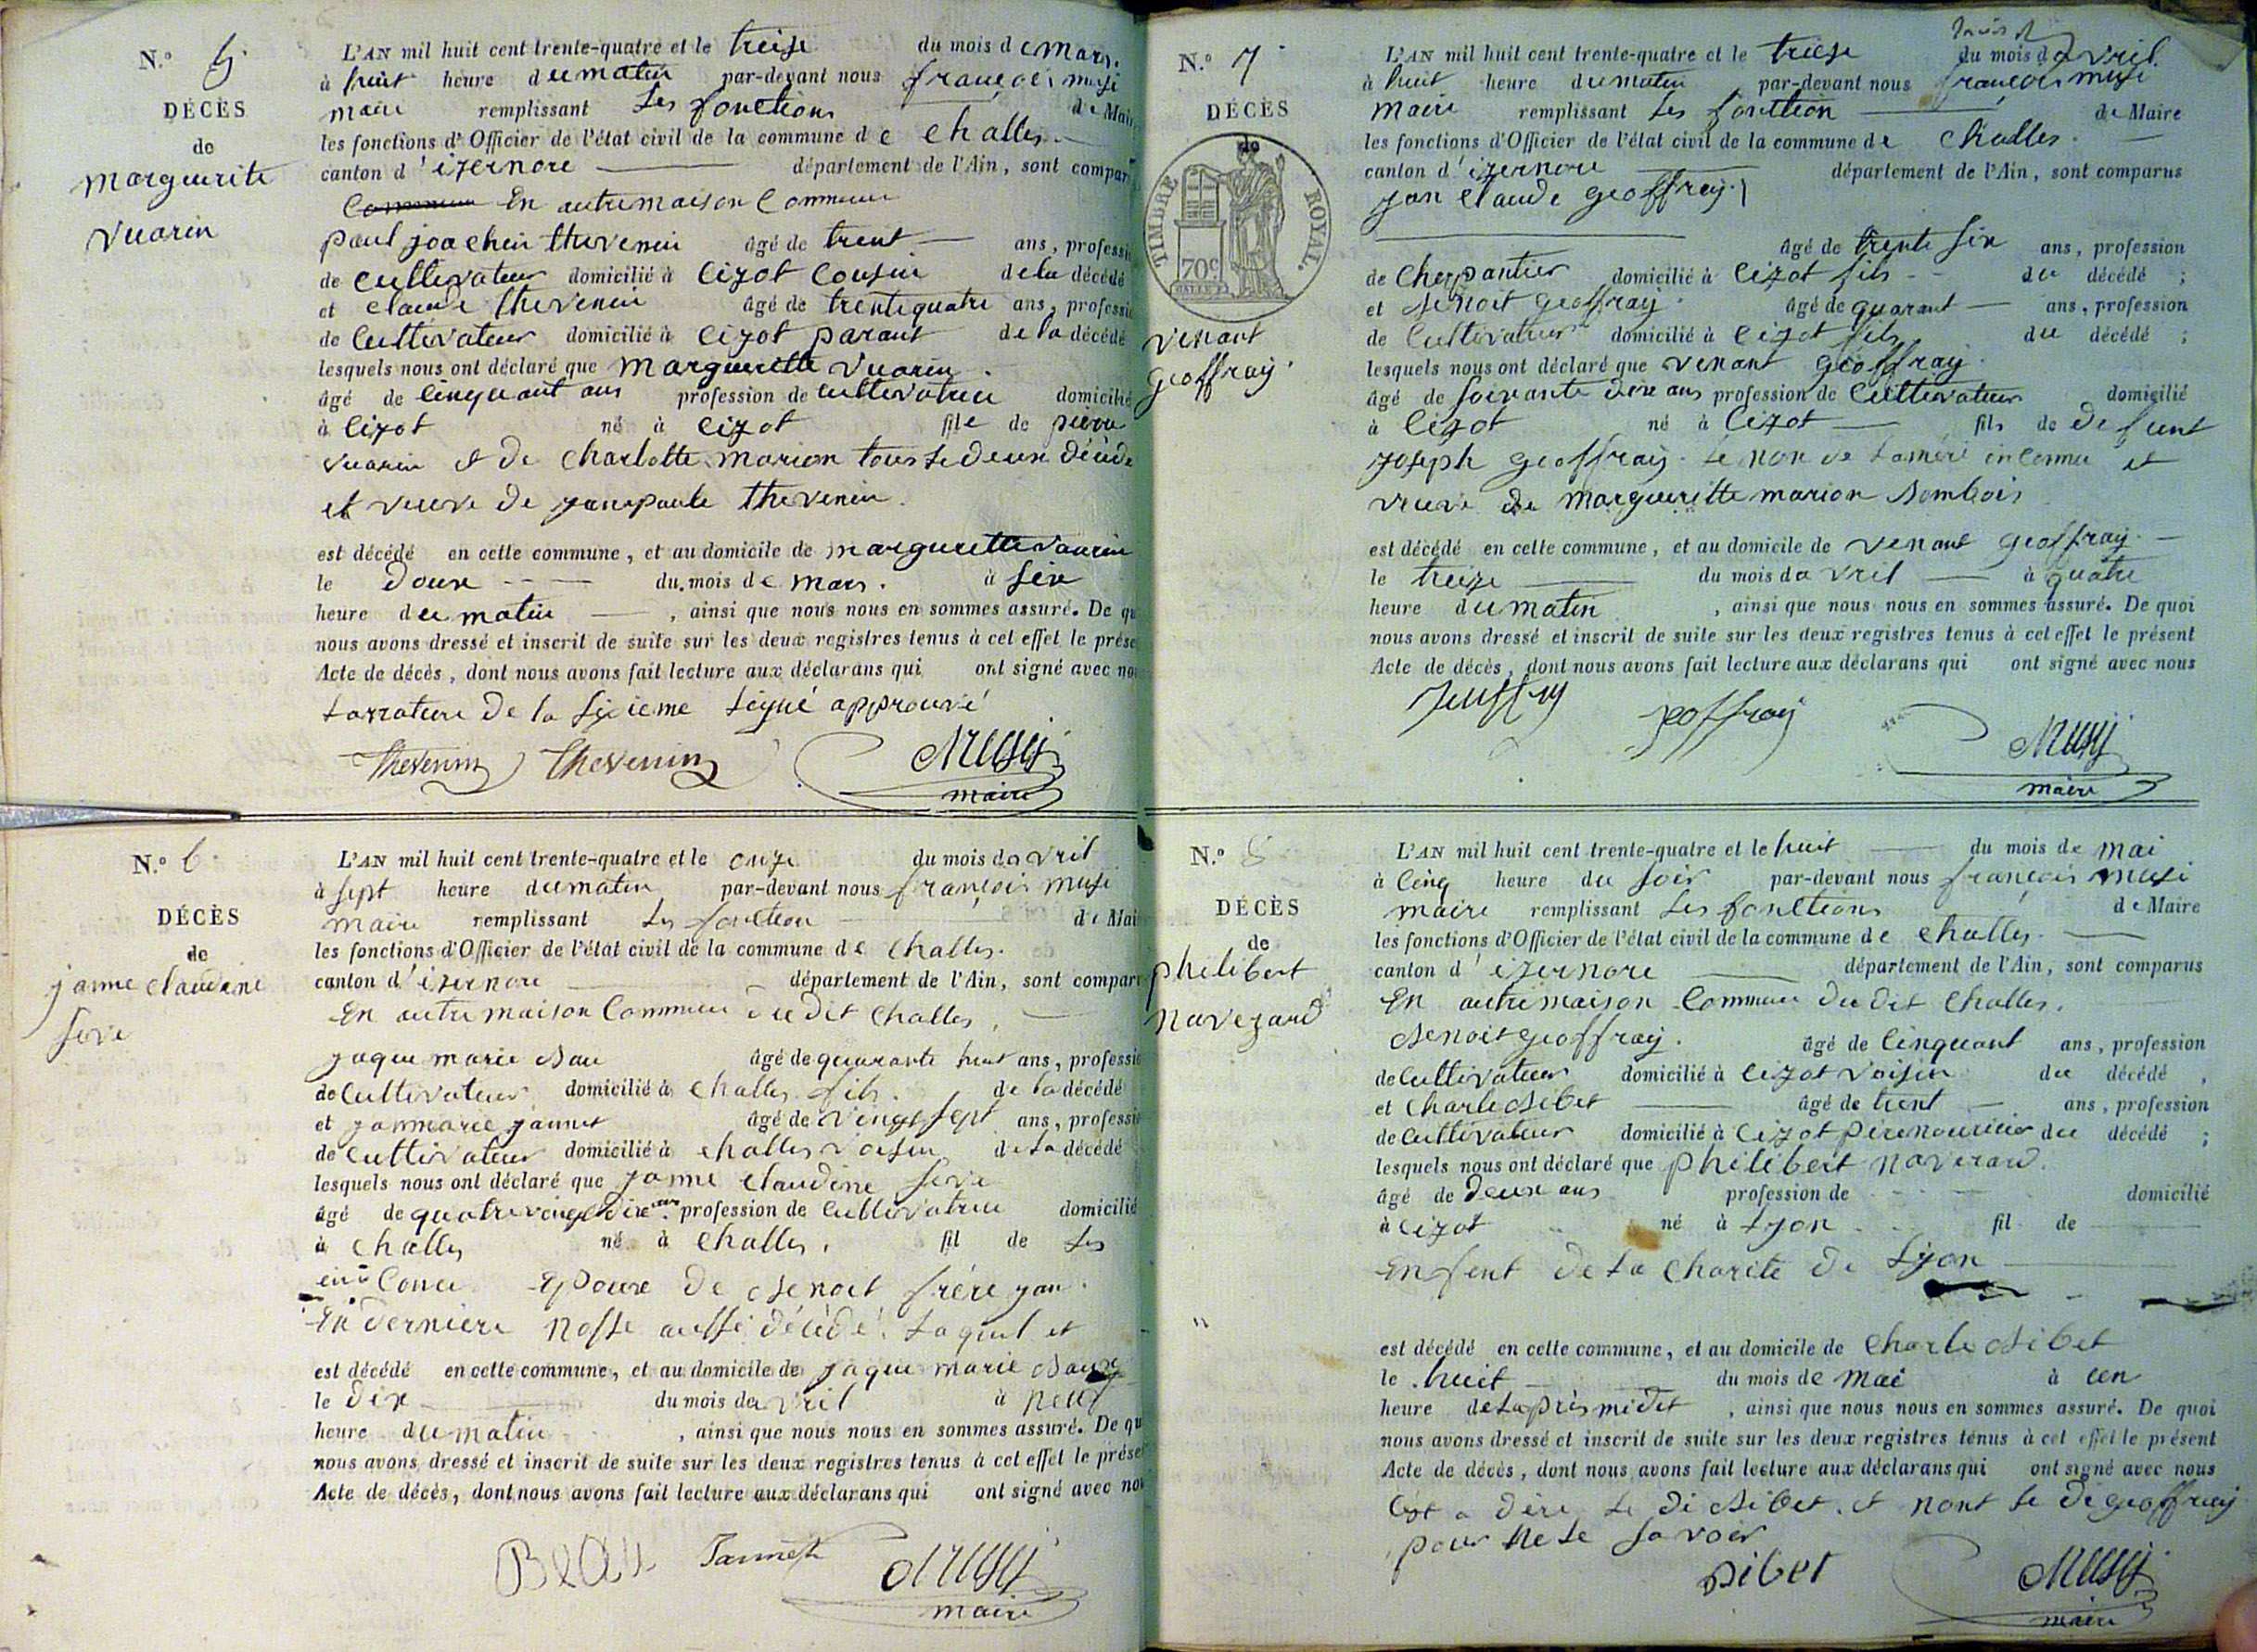 N.º 5
DÉCÈS
de
marguerite
vuarin
L'AN mil huit cent trente-quatre et le treise du mois de mars.
à huit heure du matin par-devant nous françois musi
maire remplissant les fonctions de Maire
les fonctions d'Officier de l'état civil de la commune de challes
canton d'izernore département de l'Ain, sont compar
En autre maison Commune
paul joachin thevenin âgé de trent ans, professi
de cultivateur domicilié à cizot cousin de la décédé
et claude thevenin âgé de trente quatre ans, professi
de cultivateur domicilié à cizot parant de la décédé
lesquels nous ont déclaré que marguerite vuarin
âgé de cinquant ans profession de cultivatrice domicilié
à cizot né à cizot file de pierre
vuarin et de charlotte marion tous le deux décédé
et veuve de janpaule thevenin.
est décédé en cette commune, et au domicile de margueritte vuarin
le douse du mois de mars. à six
heure du matin, ainsi que nous nous en sommes assuré. De qu
nous avons dressé et inscrit de suite sur les deux registres tenus à cet effet le prése
Acte de décès, dont nous avons fait lecture aux déclarans qui ont signé avec no
larrature de la sixieme ligne approuvé
Thevenin Thevenin Musy
maire
N.º 6
DÉCÈS
de
janne claudine
serve
L'AN mil huit cent trente-quatre et le onze du mois davril
à sept heure du matin par-devant nous françois musi
maire remplissant les fonction de Mai
les fonctions d'Officier de l'état civil de la commune de challes.
canton d'izernore département de l'Ain, sont compar
En autre maison Commune du dit challes,
jaque marie Bau âgé de quarante huit ans, professi
de cultivateur domicilié à challes fils. de la décédé
et janmarie jannet âgé de vingt sept ans, professi
de cultivateur domicilié à challes voisin de la décédé
lesquels nous ont déclaré que janne claudine
âgé de quatre vingt dix ans profession de cultivatrice domicilié
à challes né à challes, fil de les
inConu Epouse de Benoit frère jan
En derniere nosse aussi décédé. laquel et
est décédé en cette commune, et au domicile de jaque marie Bau
le dix du mois davril à neuf
heure du matin, ainsi que nous nous en sommes assuré. De qu
nous avons dressé et inscrit de suite sur les deux registres tenus à cet effet le prése
Acte de décès, dont nous avons fait lecture aux déclarans qui ont signé avec no
Beau Jannet Musy
maire
N.º 7
DÉCÈS
de
TIMBRE ROYAL.
70c
venant
geoffray
L'AN mil huit cent trente-quatre et le treise du mois davril
à huit heure du matin par-devant nous françois musi
maire remplissant les fonction de Maire
les fonctions d'Officier de l'état civil de la commune de challes
canton d'izernore département de l'Ain, sont comparus
jan claude geoffray
âgé de trente six ans, profession
de charpantier domicilié à cizot fils du décédé ;
et Benoit geoffray âgé de quarant ans, profession
de cultivateur domicilié à cizot fils du décédé ;
lesquels nous ont déclaré que venant geoffray
âgé de soixante dixe ans profession de cultivateur domicilié
à cizot né à cizot fils de defunt
joseph geoffray le non de la mère inconnu et
veuve de margueritte marion Bombois
est décédé en cette commune, et au domicile de venant geoffray
le treize du mois davril à quatre
heure du matin, ainsi que nous nous en sommes assuré. De quoi
nous avons dressé et inscrit de suite sur les deux registres tenus à cet effet le présent
Acte de décès, dont nous avons fait lecture aux déclarans qui ont signé avec nous
jeoffray Musy
maire
N.º 8
DÉCÈS
de
philibert
navezard
L'AN mil huit cent trente-quatre et le huit du mois de mai
à cinq heure du soir par-devant nous françois musi
maire remplissant les fonctions de Maire
les fonctions d'Officier de l'état civil de la commune de challes
canton d'izernore département de l'Ain, sont comparus
En autre maison Commune du dit challes.
Benoit geoffray. âgé de cinquant ans, profession
de cultivateur domicilié à cizot voisin du décédé ,
et charle Bibet âgé de trent ans, profession
de cultivateur domicilié à cizot père nouricier du décédé ;
lesquels nous ont déclaré que philibert naverard.
âgé de deux ans profession de domicilié
à cizot né à Lyon fil de
Enfent de la charité de Lyon
est décédé en cette commune, et au domicile de charle Bibet
le huit du mois de mai à un
heure de laprès midit, ainsi que nous nous en sommes assuré. De quoi
nous avons dressé et inscrit de suite sur les deux registres tenus à cet effet le présent
Acte de décès, dont nous avons fait lecture aux déclarans qui ont signé avec nous
Cest a dire le di Bibet. et nont le di geoffray
pour ne le savoir
Bibet Musy
maire